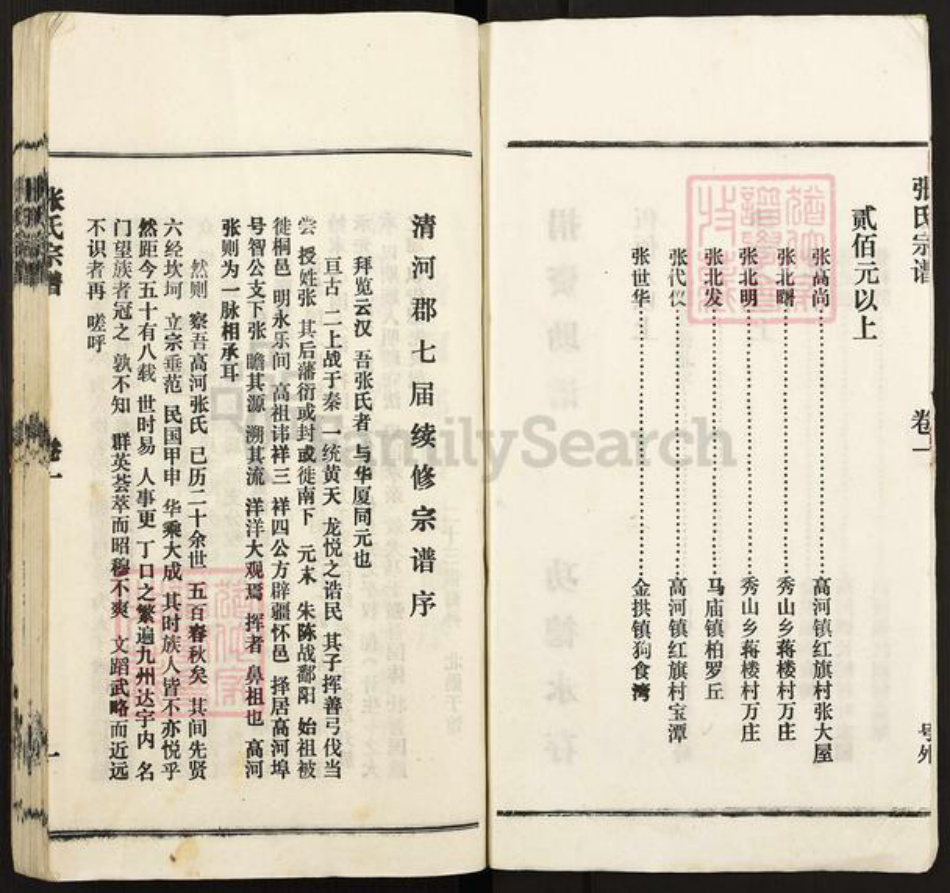 张氏宗谱 卷一 号外
贰佰元以上
张高尚……高河镇红旗村张大屋
张北曙……秀山乡蒋楼村万庄
张北明……秀山乡蒋楼村万庄
张北发……马庙镇柏罗丘
张代仪……高河镇红旗村宝潭
张世华……金拱镇狗食湾
清河郡七届续修宗谱序
拜览云汉 吾张氏者 与华厦同元也
亘古 二上战于秦 一统黄天 龙悦之诰民 其子挥善弓伐当
尝 授姓张 其后藩衍或封或徙南下 元末 朱陈战鄱阳 始祖被
徙桐邑 明永乐间 高祖讳祥三 祥四公方辟疆怀邑 择居高河埠
号智公支下张 瞻其源 溯其流 洋洋大观焉 挥者 鼻祖也 高河
张则为一脉相承耳
然则 察吾高河张氏 已历二十余世 五百春秋矣 其间先贤
六经坎坷 立宗垂范 民国甲申 华乘大成 其时族人皆不亦悦乎
然距今五十有八载 世时易 人事更 丁口之繁遍九州达宇内 名
门望族者冠之 孰不知 群英荟萃而昭穆不爽 文蹈武略而近远
不识者再 嗟呼
张氏宗谱 卷一 一
FamilySearch